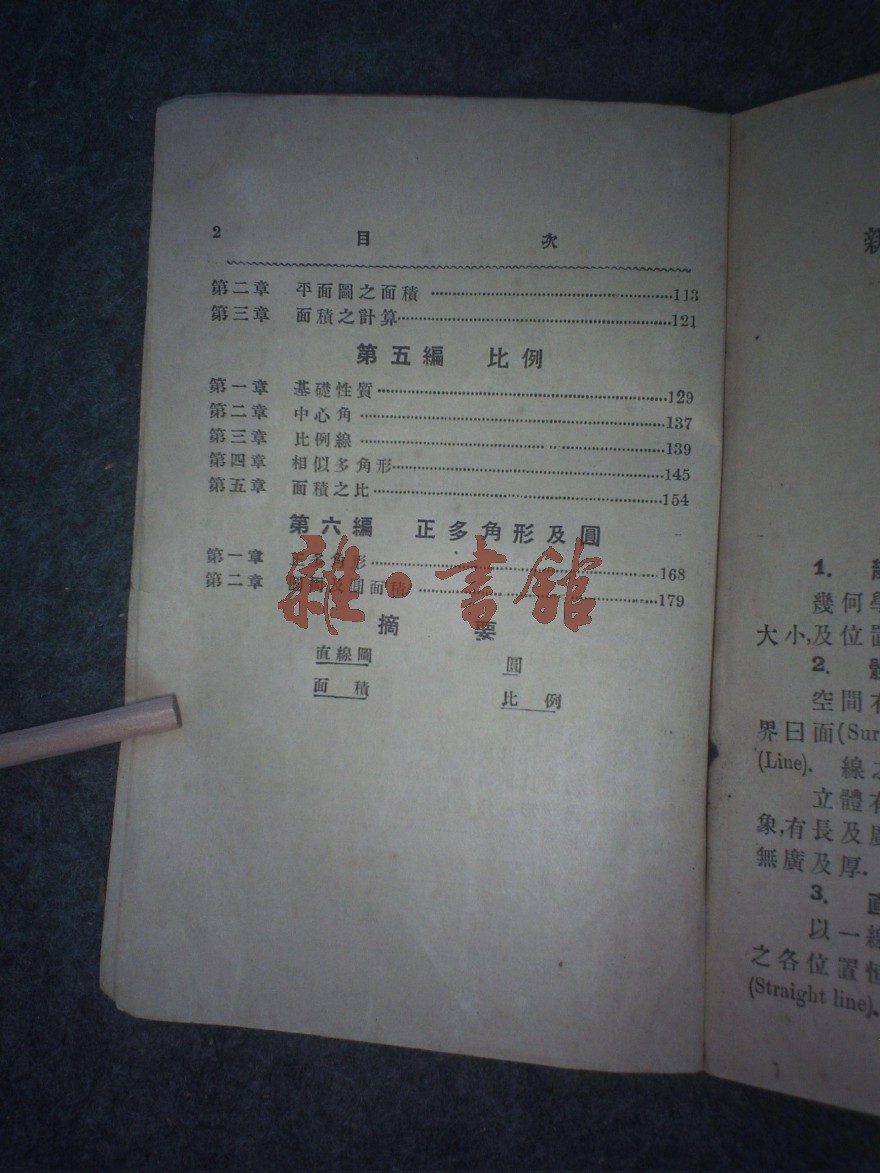 2 目 次
第二章 平面圖之面積 ……………………………113
第三章 面積之計算……………………………121
第五編 比例
第一章 基礎性質……………………………129
第二章 中心角……………………………137
第三章 比例線……………………………139
第四章 相似多角形……………………………145
第五章 面積之比……………………………154
第六編 正多角形及圓
第一章 正多角形……………………………168
第二章 圓周及圓面積……………………………179
雜·書館
摘 要
直線圖 圓
面積 比例
1.
幾何學
大小,及位置
2.
空間有
界曰面(Sur
(Line). 線之
立體有
象,有長及廣
無廣及厚.
3. 直
以一線
之各位置恒
(Straight line).